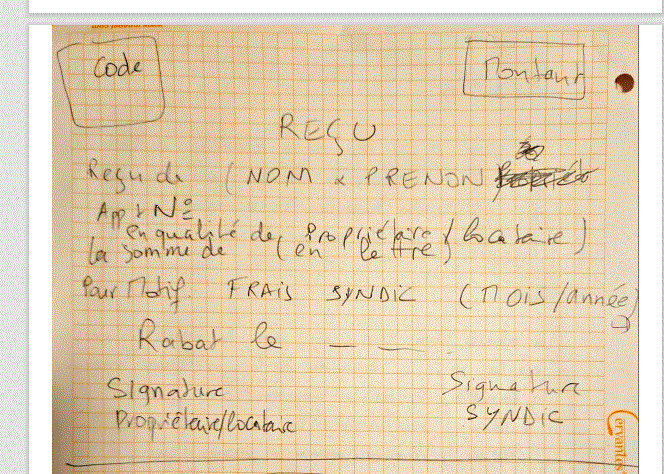 Code
Montant
REÇU
Reçu de (NOM & PRENON
Appt Nº
en qualité de Propriétaire / locataire)
la somme de (en lettre)
Pour Motif. FRAIS SYNDIC (Mois/année)
Rabat le _ _
Signature
Signature
Propriétaire/locataire
SYNDIC
ervantes